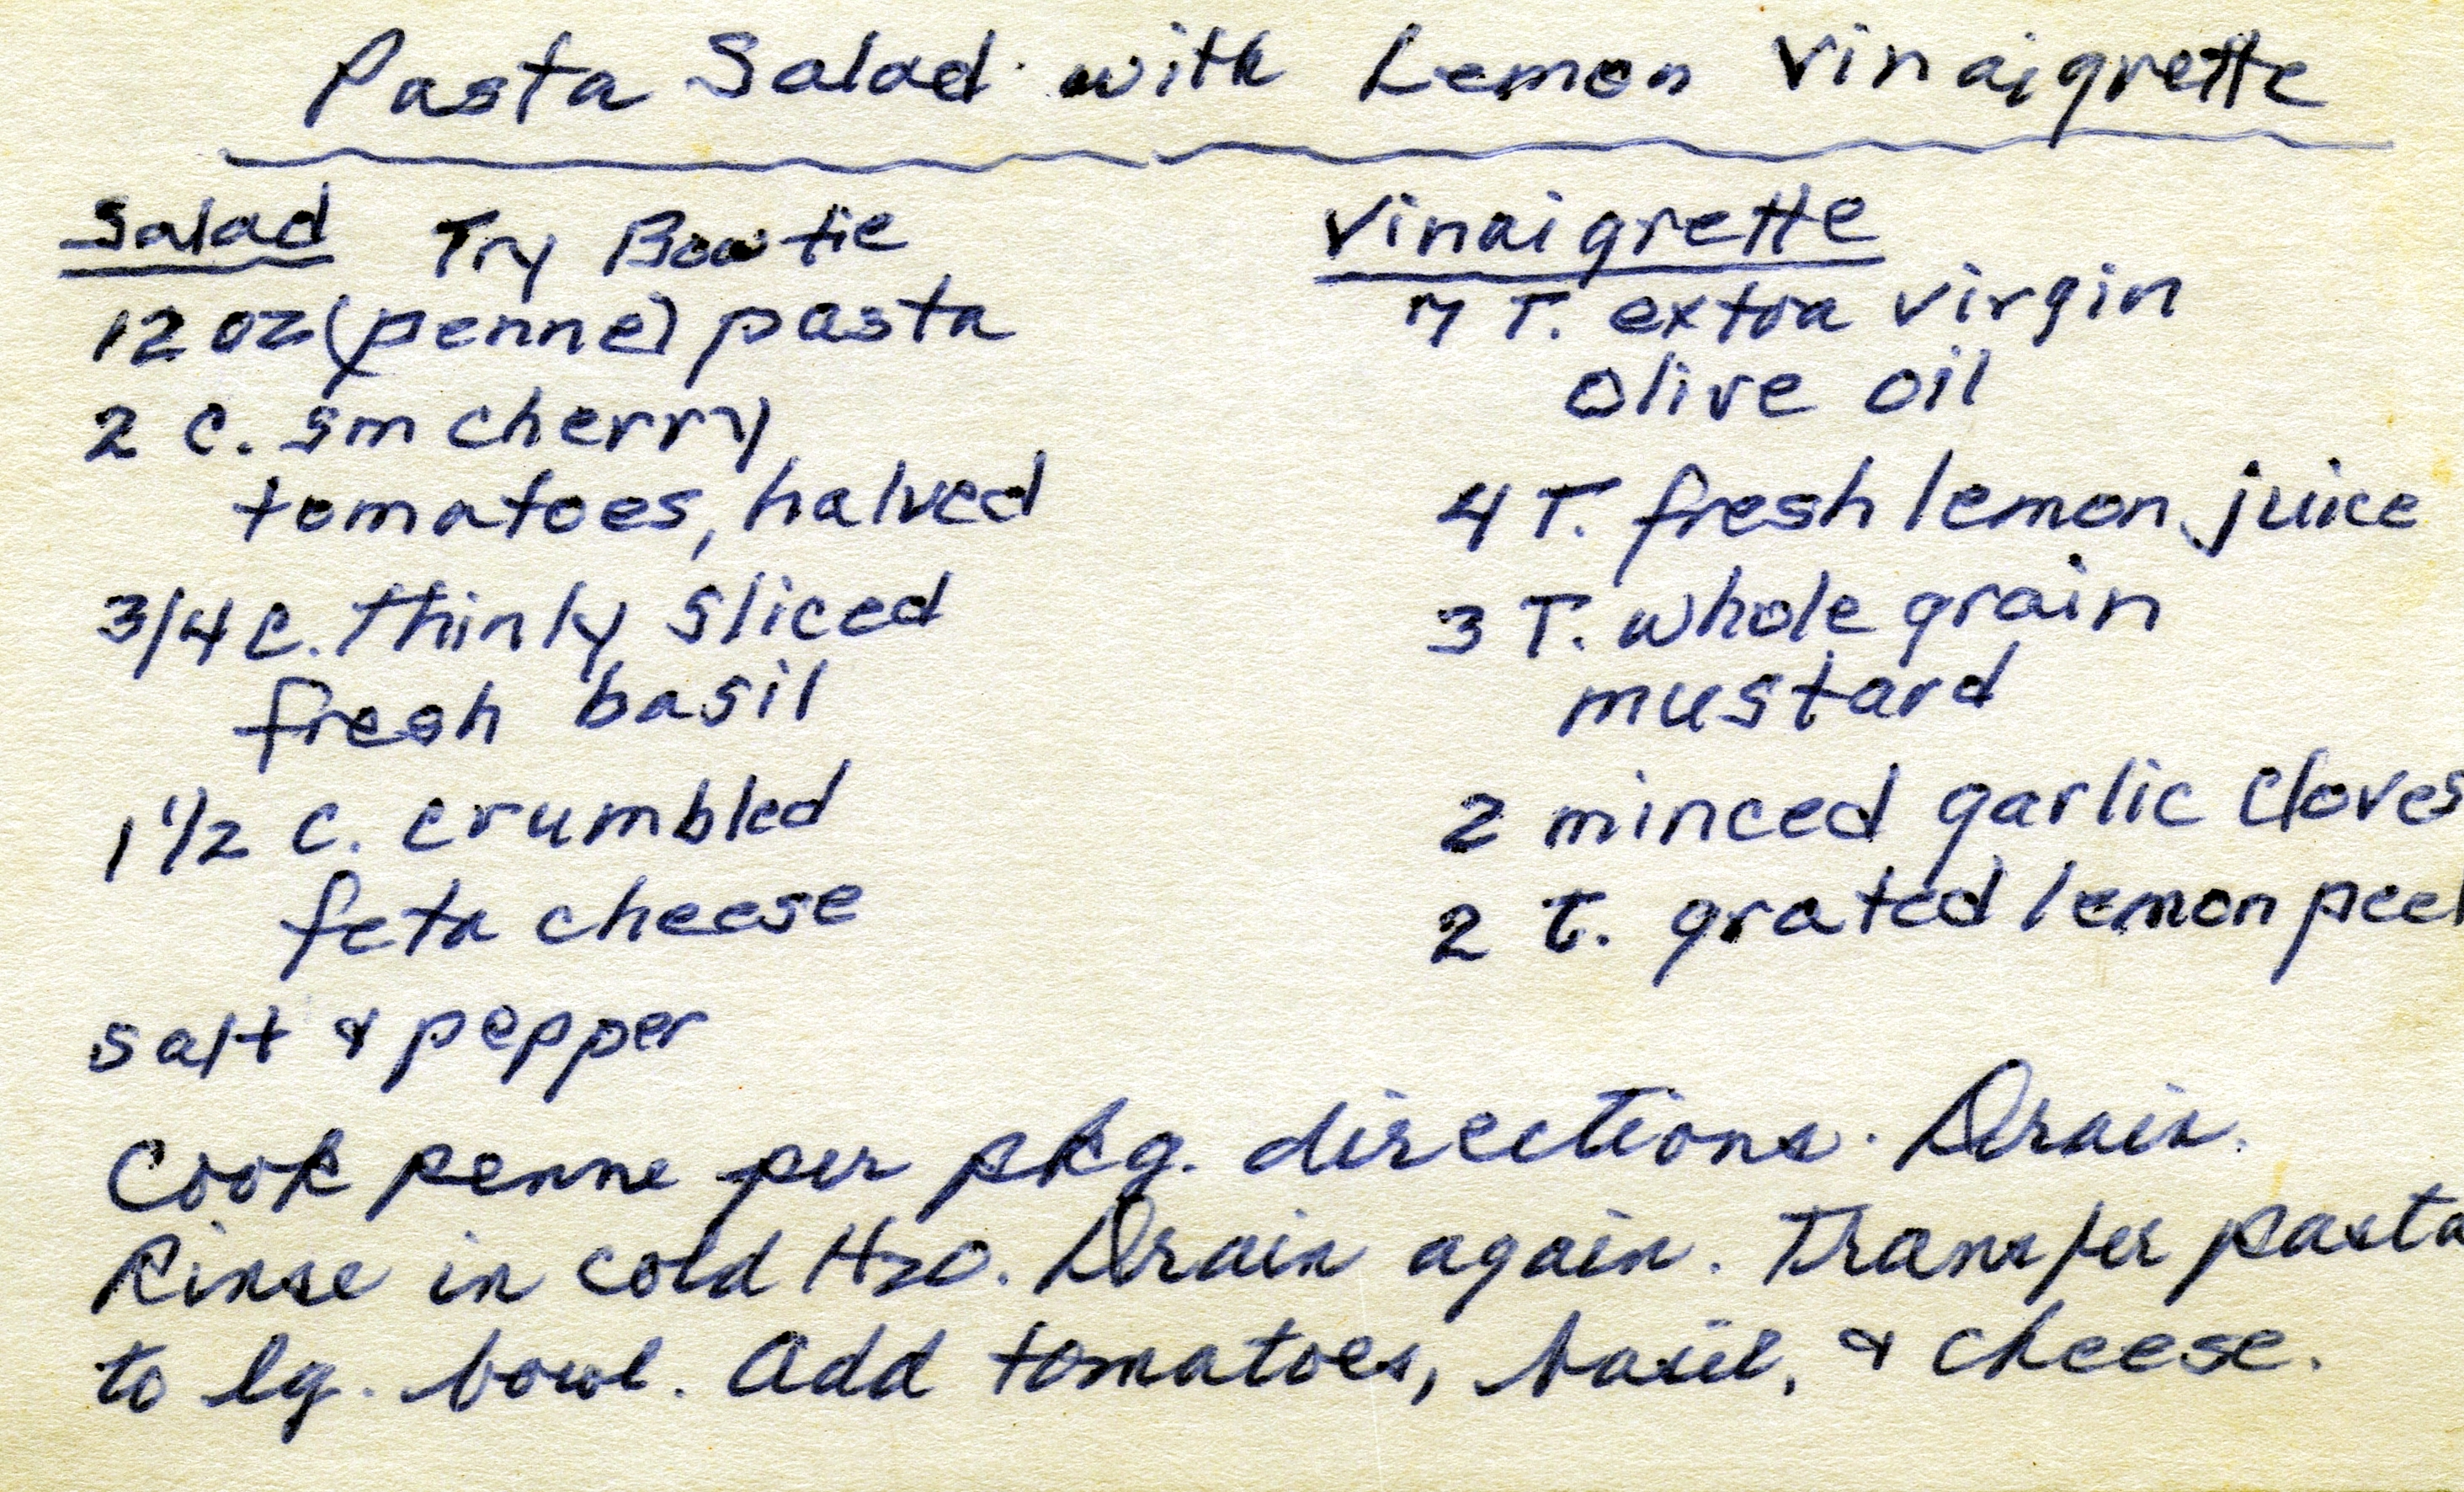 Pasta Salad with Lemon Vinaigrette
Salad Try Bowtie
12 oz (penne) pasta
2 c. sm cherry
tomatoes, halved
3/4 c. thinly sliced
fresh basil
1 1/2 c. crumbled
feta cheese
salt & pepper
Vinaigrette
7 T. extra virgin
olive oil
4 T. fresh lemon juice
3 T. whole grain
mustard
2 minced garlic cloves
2 t. grated lemon peel
Cook penne per pkg. directions. Drain.
Rinse in cold H2O. Drain again. Transfer pasta
to lg. bowl. Add tomatoes, basil, & cheese.